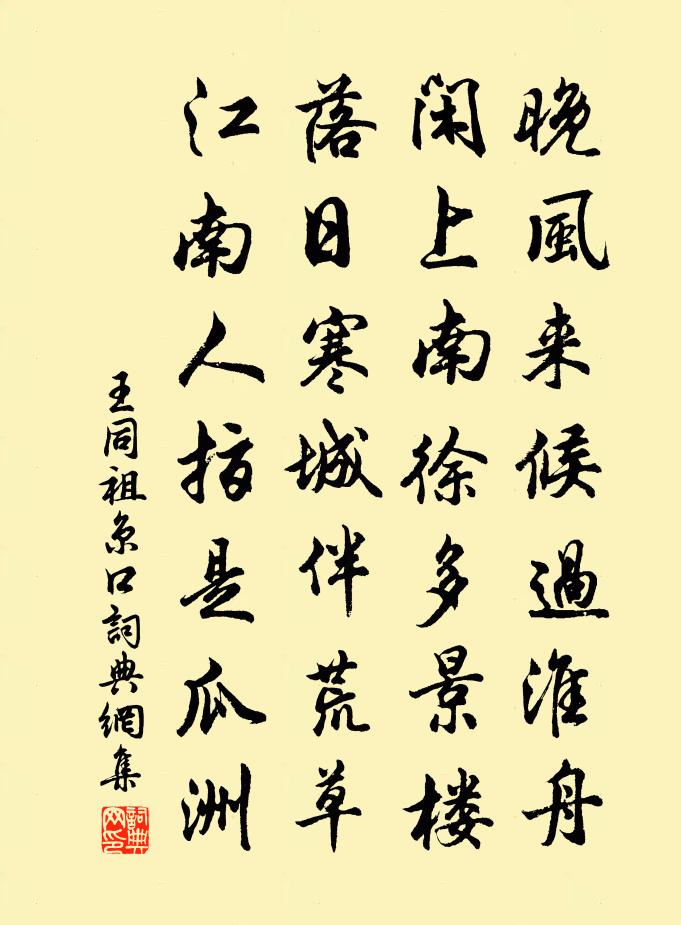 晚風来候過淮舟
闲上南徐多景楼
落日寒城伴荒草
江南人指是瓜洲
王同祖京口詞典網集
詞典网印